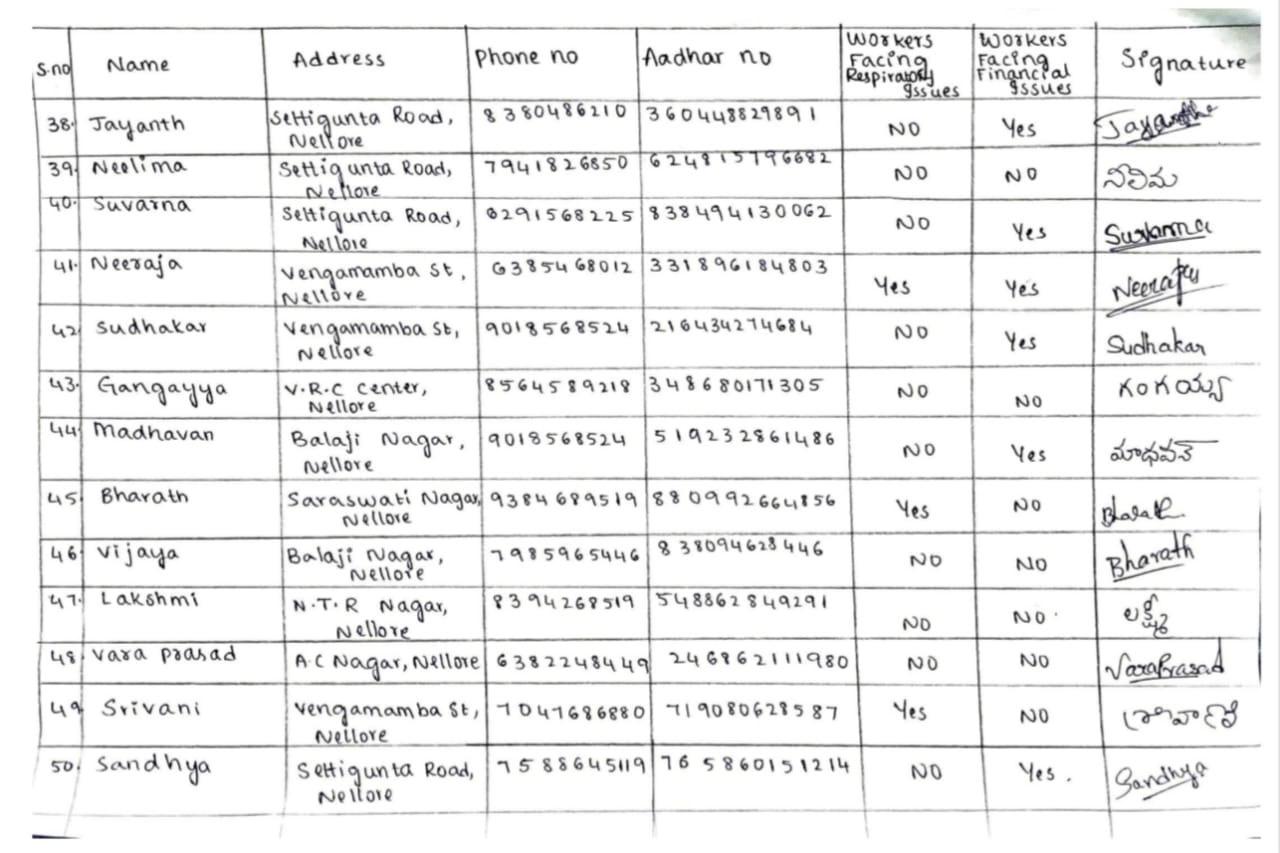 S.no Name Address Phone no Aadhar no Workers Facing Respiratory Issues Workers Facing Financial Issues Signature
38. Jayanth Settigunta Road, Nellore 8380486210 360448829891 NO Yes
39. Neelima Settigunta Road, Nellore 7941826850 624815796682 NO NO నీలిమ
40. Suvarna Settigunta Road, Nellore 8291568225 838494130062 NO Yes Suvarna
41. Neeraja Vengamamba St, Nellore 6385468012 331896184803 Yes Yes Neeraja
42 Sudhakar Vengamamba St, Nellore 9018568524 216434274684 NO Yes Sudhakar
43. Gangayya V.R.C Center, Nellore 8564589218 348680171305 NO NO గంగయ్య
44. Madhavan Balaji Nagar, Nellore 9018568524 519232861486 NO Yes మాధవన్
45. Bharath Saraswati Nagar, Nellore 9384689519 880992664856 Yes NO Bharath
46. Vijaya Balaji Nagar, Nellore 7985965446 838094628446 NO NO Bharath
47. Lakshmi N.T.R Nagar, Nellore 8394268519 548862849291 NO NO. లక్ష్మి
48. Vara prasad A.C Nagar, Nellore 6382248449 246862111980 NO NO VaraPrasad
49. Srivani Vengamamba St, Nellore 7047686880 719080628587 Yes NO శ్రీవాణి
50. Sandhya Settigunta Road, Nellore 7588645119 765860151214 NO Yes. Sandhya